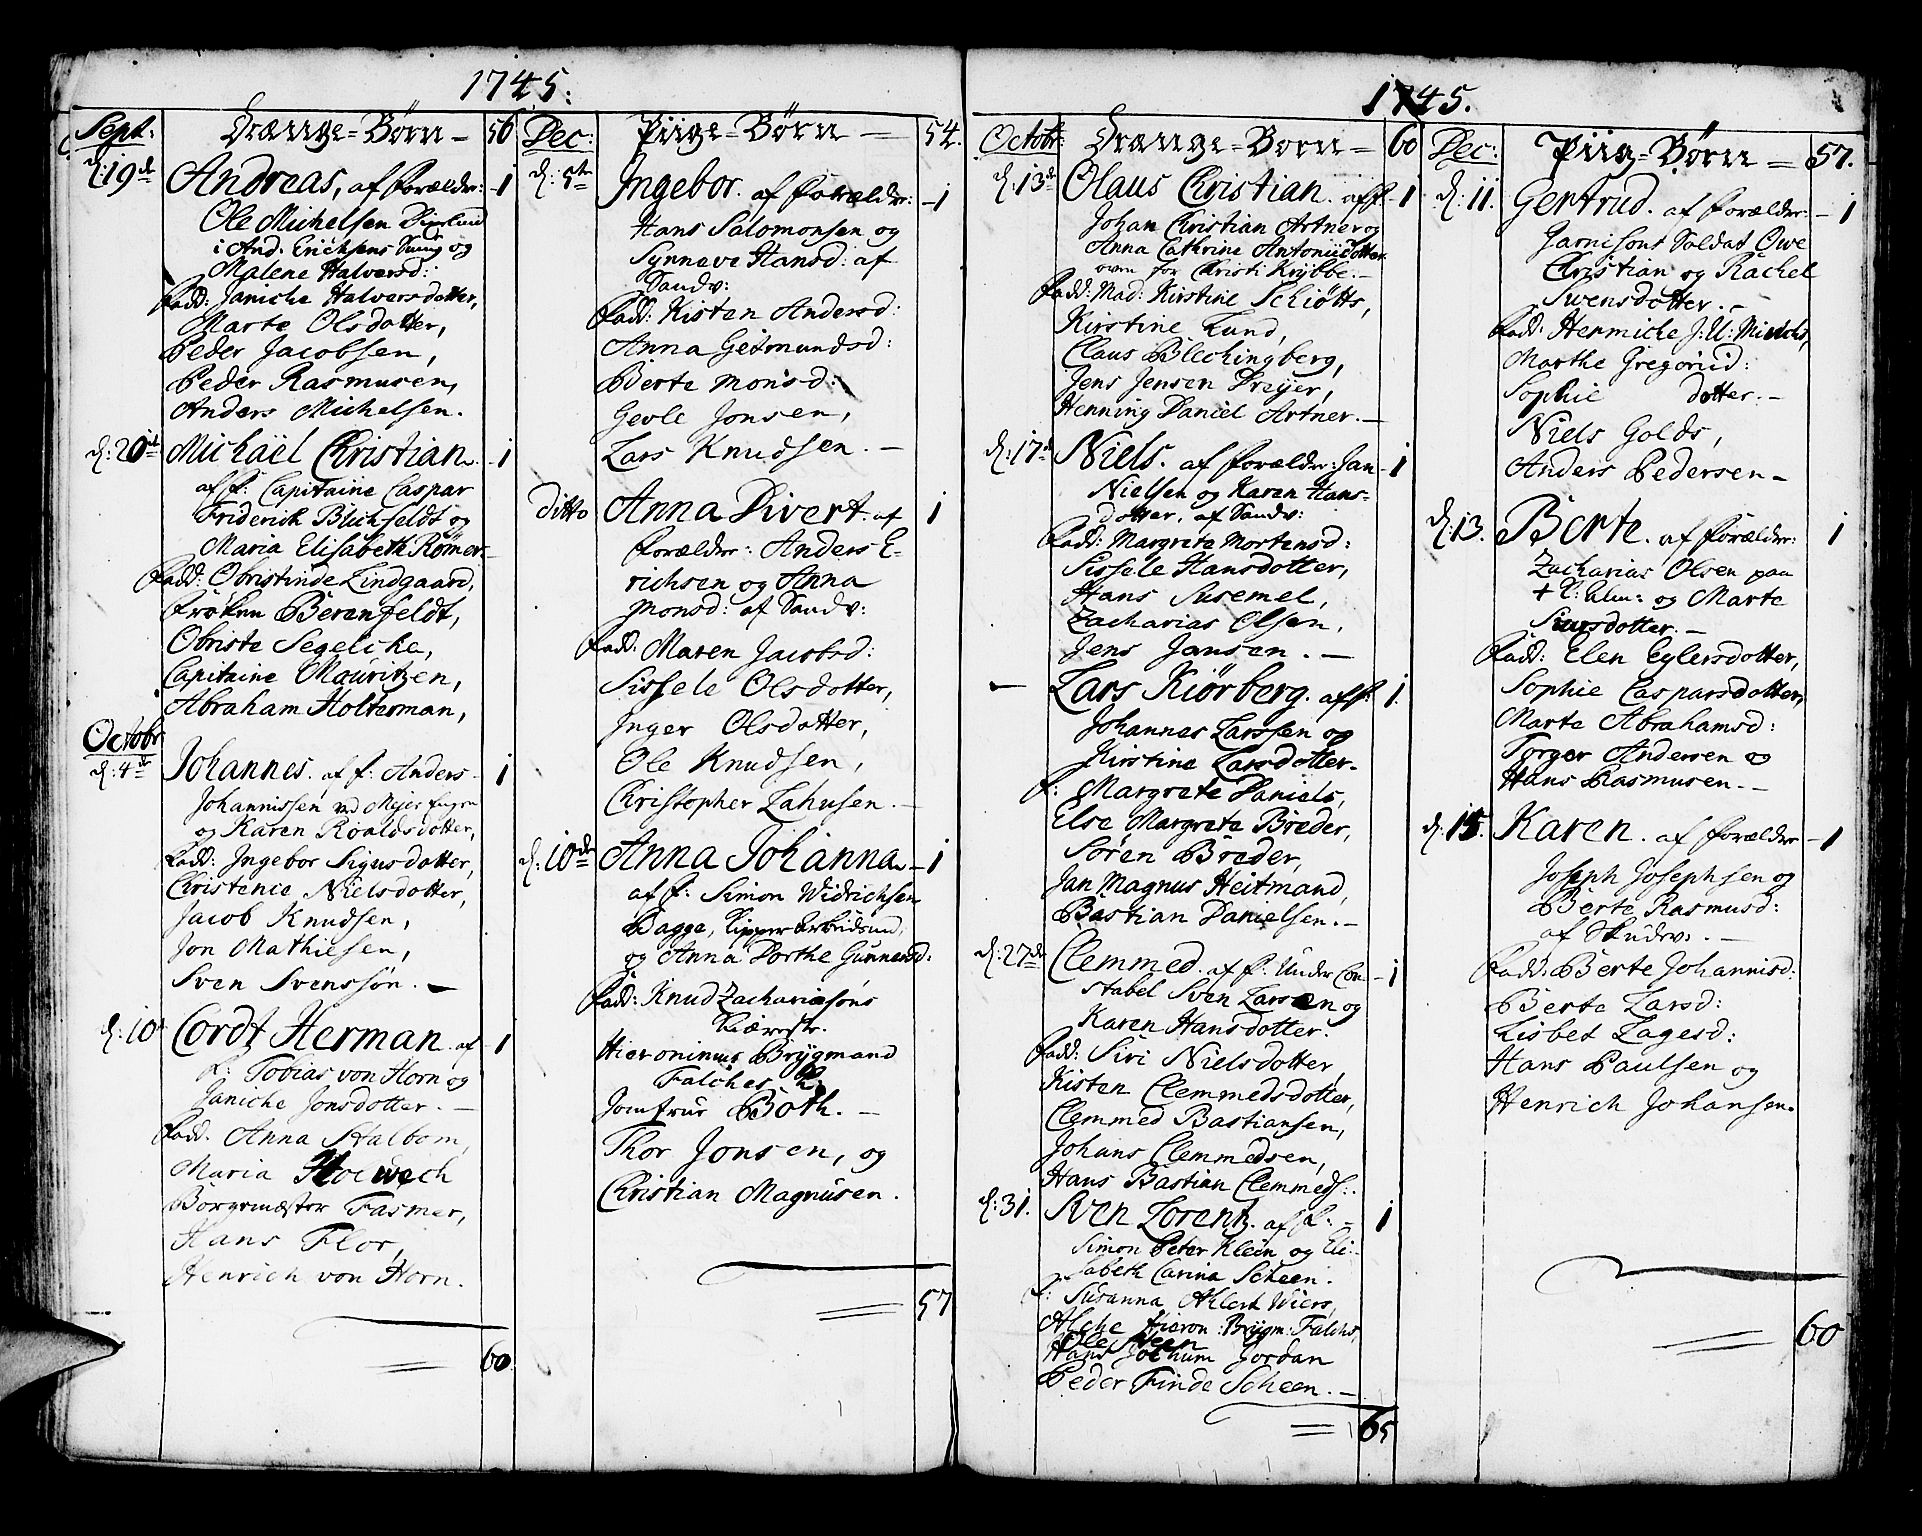 1745.
Sept: Drænge-Børn - 56
d: 19de Andreas, af Forældre: -1
Ole Michelsen
i And: Erichsens og
Malene Halversd:
Fadd: Janiche Halversdotter,
Marte Olsdotter,
Peder Jacobsen,
Peder Rasmusen,
Anders Michelsen.
d: 20de Michäel Christian. -1
af F: Capitaine Caspar
Friderich Blichfeldt og
Maria Elisabeth Rømer.-
Fadd: Obristinde Lindgaard,
Frøken Berenfeldt,
Obriste Segelcke,
Capitaine Mouritzen,
Abraham Holterman,
Octobr
d: 4de Johannes. af F: Anders- 1
Johannissen ved
og Karen Roaldsdotter,
Fadd: Ingebor Sigusdatter,
Christence Nielsdotter,
Jacob Knudsen,
Jon Mathiesen,
Sven Svenssøn. -
d: 10 Cordt Herman. af -1
F: Tobias von Horn og
Janiche Jonsdotter. -
Fadd. Anna Stalbom,
Maria
Borgemæster Fasmer,
Hans Flor,
Henrich von Horn.
60.
Dec: Piige-Børn - 54.
d: 5te Ingebor. af Forældre: -1
Hans Salomonsen og
Synneve Hansd: af
Sandv:
Fadd: Kisten Andersd:
Anna Getmundsd:
Berte Monsd:
Gevle Jonsen,
Lars Knudsen. -
ditto Anna Divert. af 1
Forældre: Anders E-
richsen og Anna
Monsd: af Sandv:
Fadd: Maren Jacobsd:
Sissele Olsdotter,
Inger Olsdotter,
Ole Knudsen,
Christopher Lahusen. -
d: 10de Anna Johanna -1
af F: Simon Widrichsen
Bagge,
og Anna Dorthe Gunnersd:
Fadd: Knud Zachariasøns
Kiæreste.
Hieronimus Brygmand
Falches
Jomfrue Both. -
Thor Jonsen, og
Christian Magnusen.
57
1745.
Octobr: Drænge-Børn - 60
d: 13de Olaus Christian. af F. 1
Johan Christian Artner og
Anna Cathrine Antoniidotter
oven for Christi Krybbe. -
Fadd: Mad: Kirstine Schiøtts,
Kirstine Lund,
Claus Blechingberg,
Jens Jensen Dreyer,
Henning Daniel Artner. -
d: 17de Niels. af Forældre: Jan -1
Nielsen og Karen Hans-
dotter, af Sandv:
Fadd: Margrete Mortensd:
Sissele Hansdotter,
Hans Susemel,
Zacharias Olsen,
Jens Jansen. -
- Lars Kiørberg. af F: 1.
Johannes Larssen og
Kirstine Larsdotter.
F: Margrete Daniels,
Else Margrete Breder,
Søren Breder,
Jan Magnus Heitmand,
Bastian Danielsen. -
d: 27de Clemmed. af F: Under Con- -1
stabel Sven Larsen og
Karen Hansdotter.
Fadd: Siri Nielsdotter,
Kisten Clemmedsdotter,
Clemmed Bastiansen,
Johans Clemmedsen,
Hans Bastian Clemmeds:.
d: 31. Sven Lorentz. af F. - 1
Simon Peter Klein og Eli-
sabeth Carina Scheen.
F: Susanna Ahlert Wiers,
Alche Hieron: Brygm: Falchs,
Hans Jochum Jordan
Peder Finde Scheen. -
65
Dec: Piig-Børn - 57.
d: 11. Gertrud. af Forældre: - 1
Garnisons Soldat Owe
Christian og Rachel
Swensdotter. -
Fadd: Hermiche J: U:
Marthe Gregoriid:
Sophie dotter. -
Niels Golds,
Anders Pedersen -
d: 13. Berte. af Forældre: 1
Zacharias Olsen paa
og Marte
Fadd: Elen Eylersdotter,
Sophie Caspersdotter,
Marte Abrahamsd:
Torger Andersen og
Hans Rasmusen. -
d: 15. Karen. af Forældre -1
Joseph Josephsen og
Berte Rasmusd:
af Skudev:. -
Fadd: Berte Johannisd:
Berte Larsd:
Lisbet Lagesd:
Hans Paulsen og
Henrich Johansen.
60